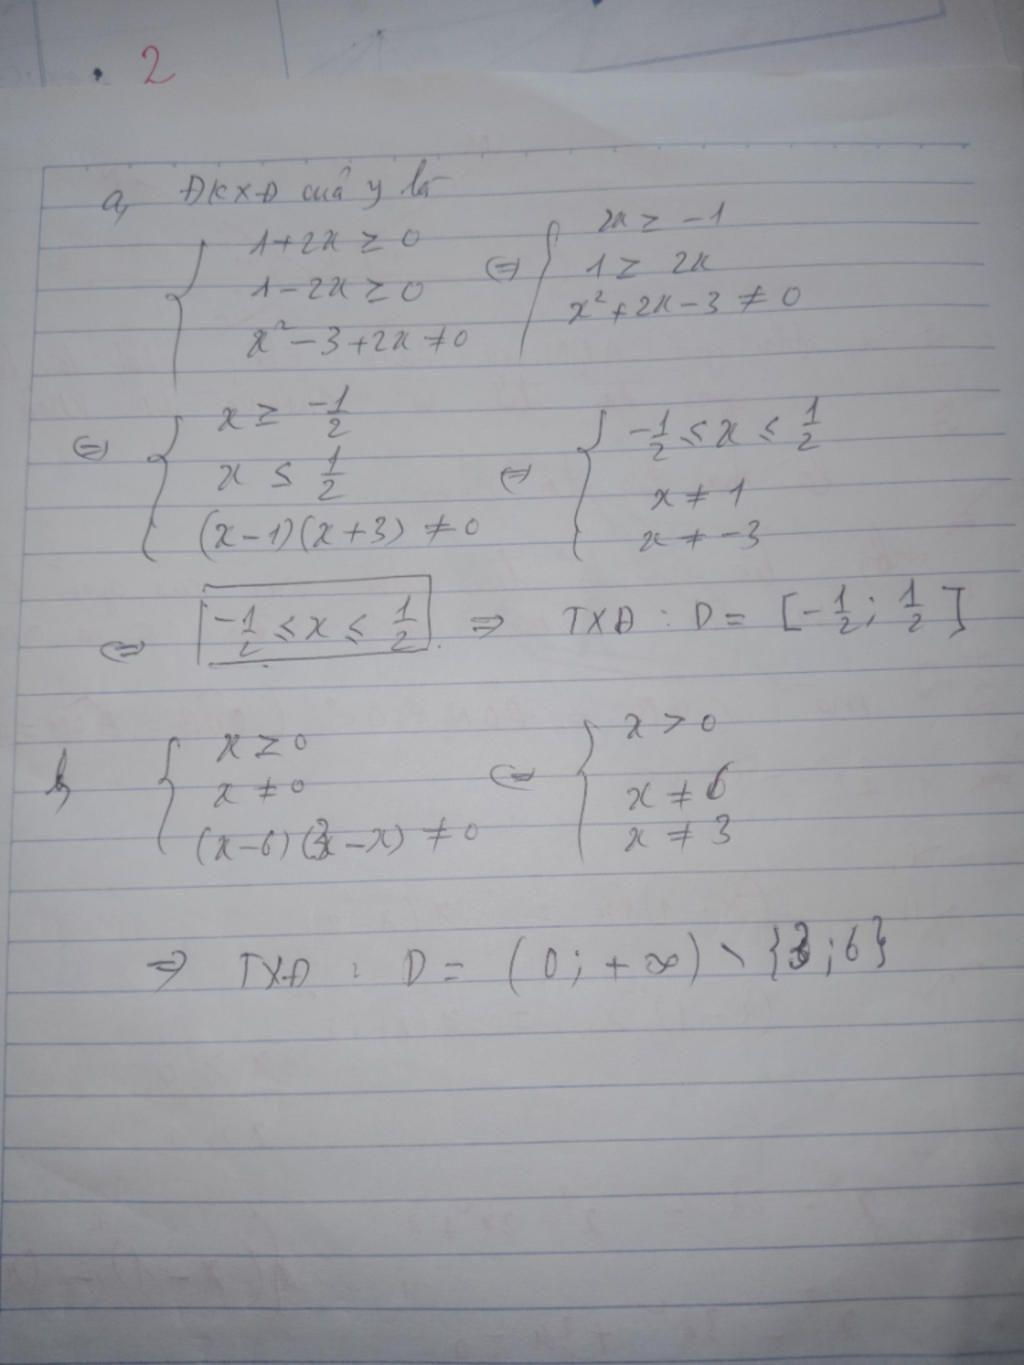 2
a, ĐKXĐ của y là
{ 1+2x ≥ 0
1-2x ≥ 0
x² - 3 + 2x ≠ 0
⇔ { 2x ≥ -1
1 ≥ 2x
x² + 2x - 3 ≠ 0
⇔ { x ≥ -1/2
x ≤ 1/2
(x-1)(x+3) ≠ 0
⇔ { -1/2 ≤ x ≤ 1/2
x ≠ 1
x ≠ -3
⇔ -1/2 ≤ x ≤ 1/2 ⇒ TXĐ : D = [-1/2 ; 1/2]
b, { x ≥ 0
x ≠ 0
(x-6)(3-x) ≠ 0
⇔ { x > 0
x ≠ 6
x ≠ 3
⇒ TXĐ : D = (0; +∞) \ {3;6}